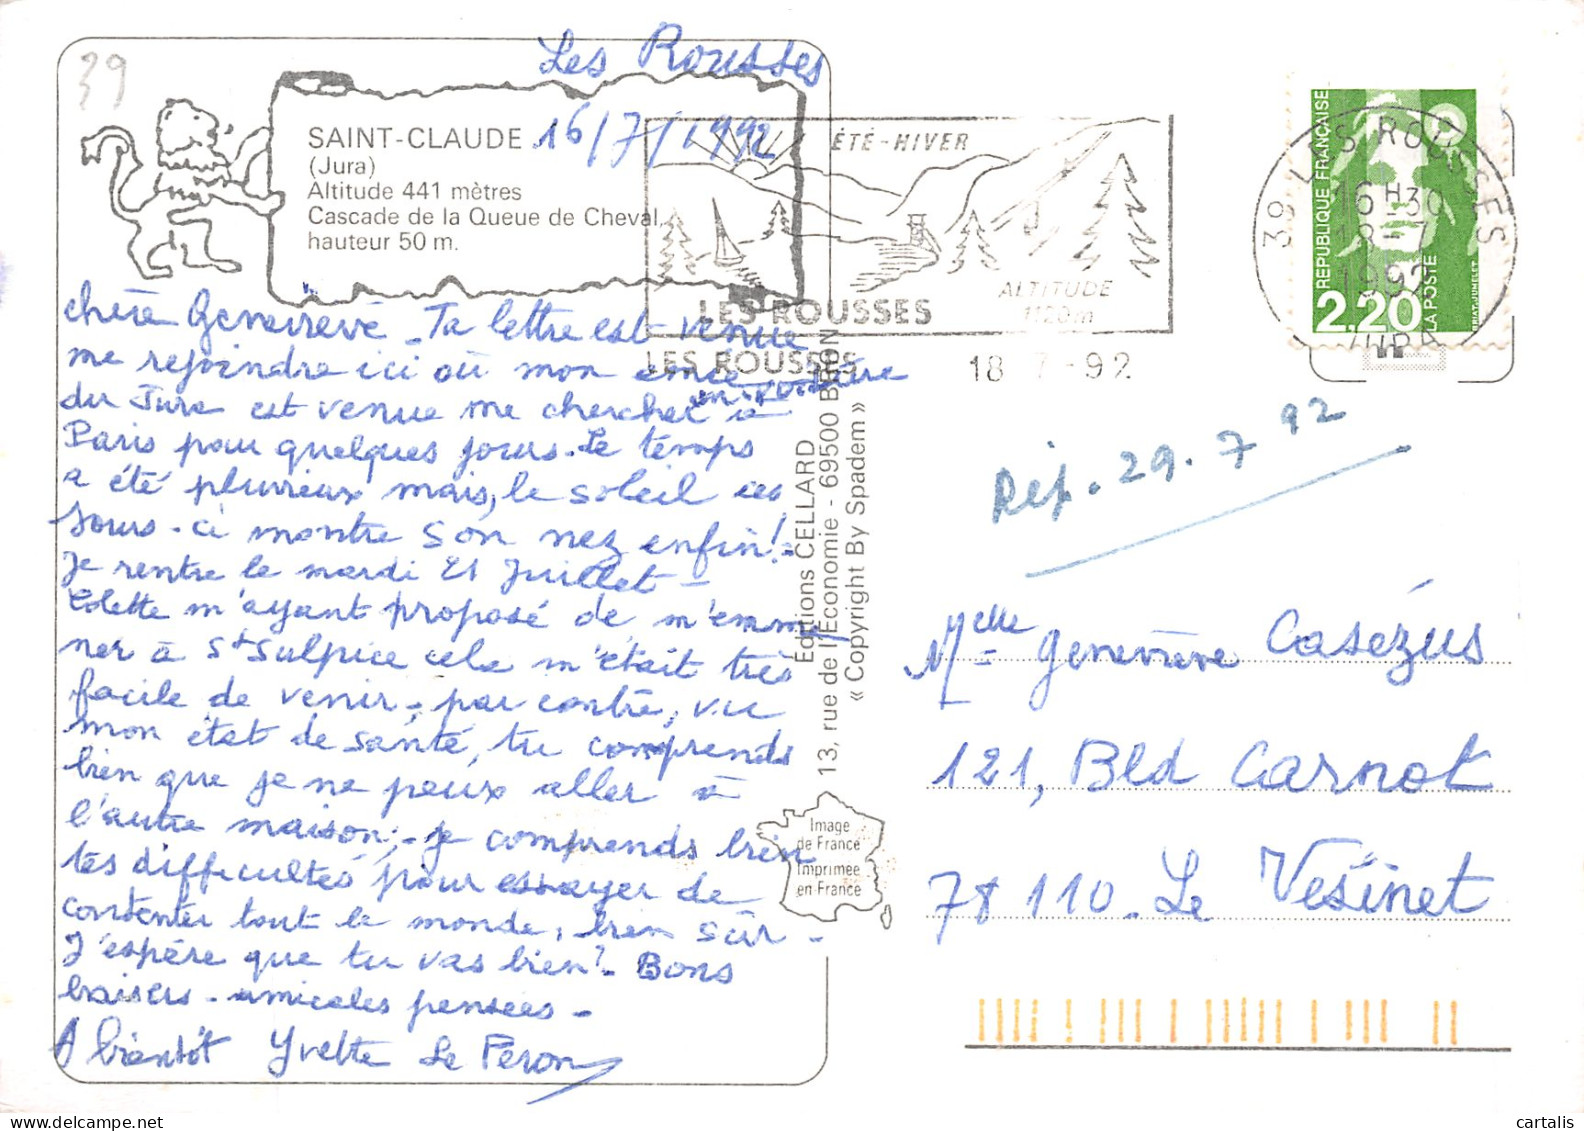 39
Les Rousses
16/7/1992
SAINT-CLAUDE
(Jura)
Altitude 441 mètres
Cascade de la Queue de Cheval,
hauteur 50 m.
chère Geneviève - Ta lettre est venue
me rejoindre ici où mon
du Jura est venue me chercher à
Paris pour quelques jours. Le temps
a été pluvieux mais, le soleil ces
jours-ci montre son nez enfin! -
Je rentre le mardi 21 Juillet -
Colette m'ayant proposé de m'emme
ner à St Sulpice cela m'était très
facile de venir - par contre, vu
mon état de santé, tu comprends
bien que je ne peux aller à
l'autre maison, - je comprends bien
tes difficultés pour essayer de
contenter tout le monde, bien sûr -
J'espère que tu vas bien? - Bons
baisers - amicales pensées -
A bientôt Yvette Le Peron
Editions CELLARD
13, rue de l'Économie - 69500 BRON
« Copyright By Spadem »
Image
de France
Imprimée
en France
ÉTÉ - HIVER
ALTITUDE
1120m
LES ROUSSES
LES ROUSSES
18 7 -92
39 LES ROUSSES
16 H 30
18 - 7
1992
JURA
REPUBLIQUE FRANÇAISE
2,20
LA POSTE
Rép. 29.7 92
Melle Geneviève Casézus
121, Bld Carnot
78 110 - Le Vésinet
cartalis